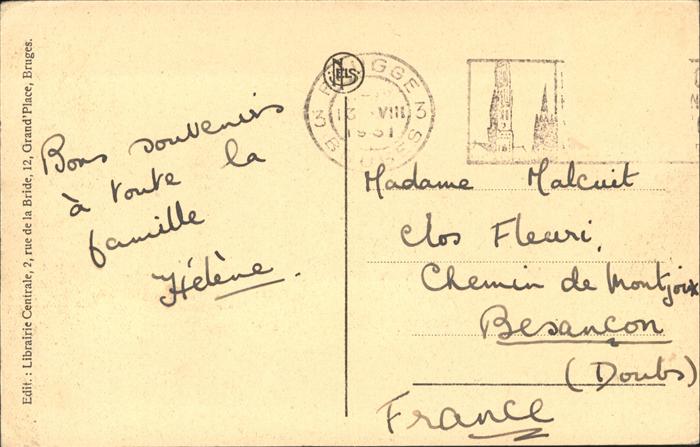 Edit. : Librairie Centrale, 2, rue de la Bride, 12, Grand'Place, Bruges.
Bons souvenirs
à toute la
famille
Hélène.
NELS
3 BRUGGE 3
13 VIII
1931
BRUGES
Madame Malcuit
Clos Fleuri,
Chemin de Montjoix
Besançon
(Doubs)
France